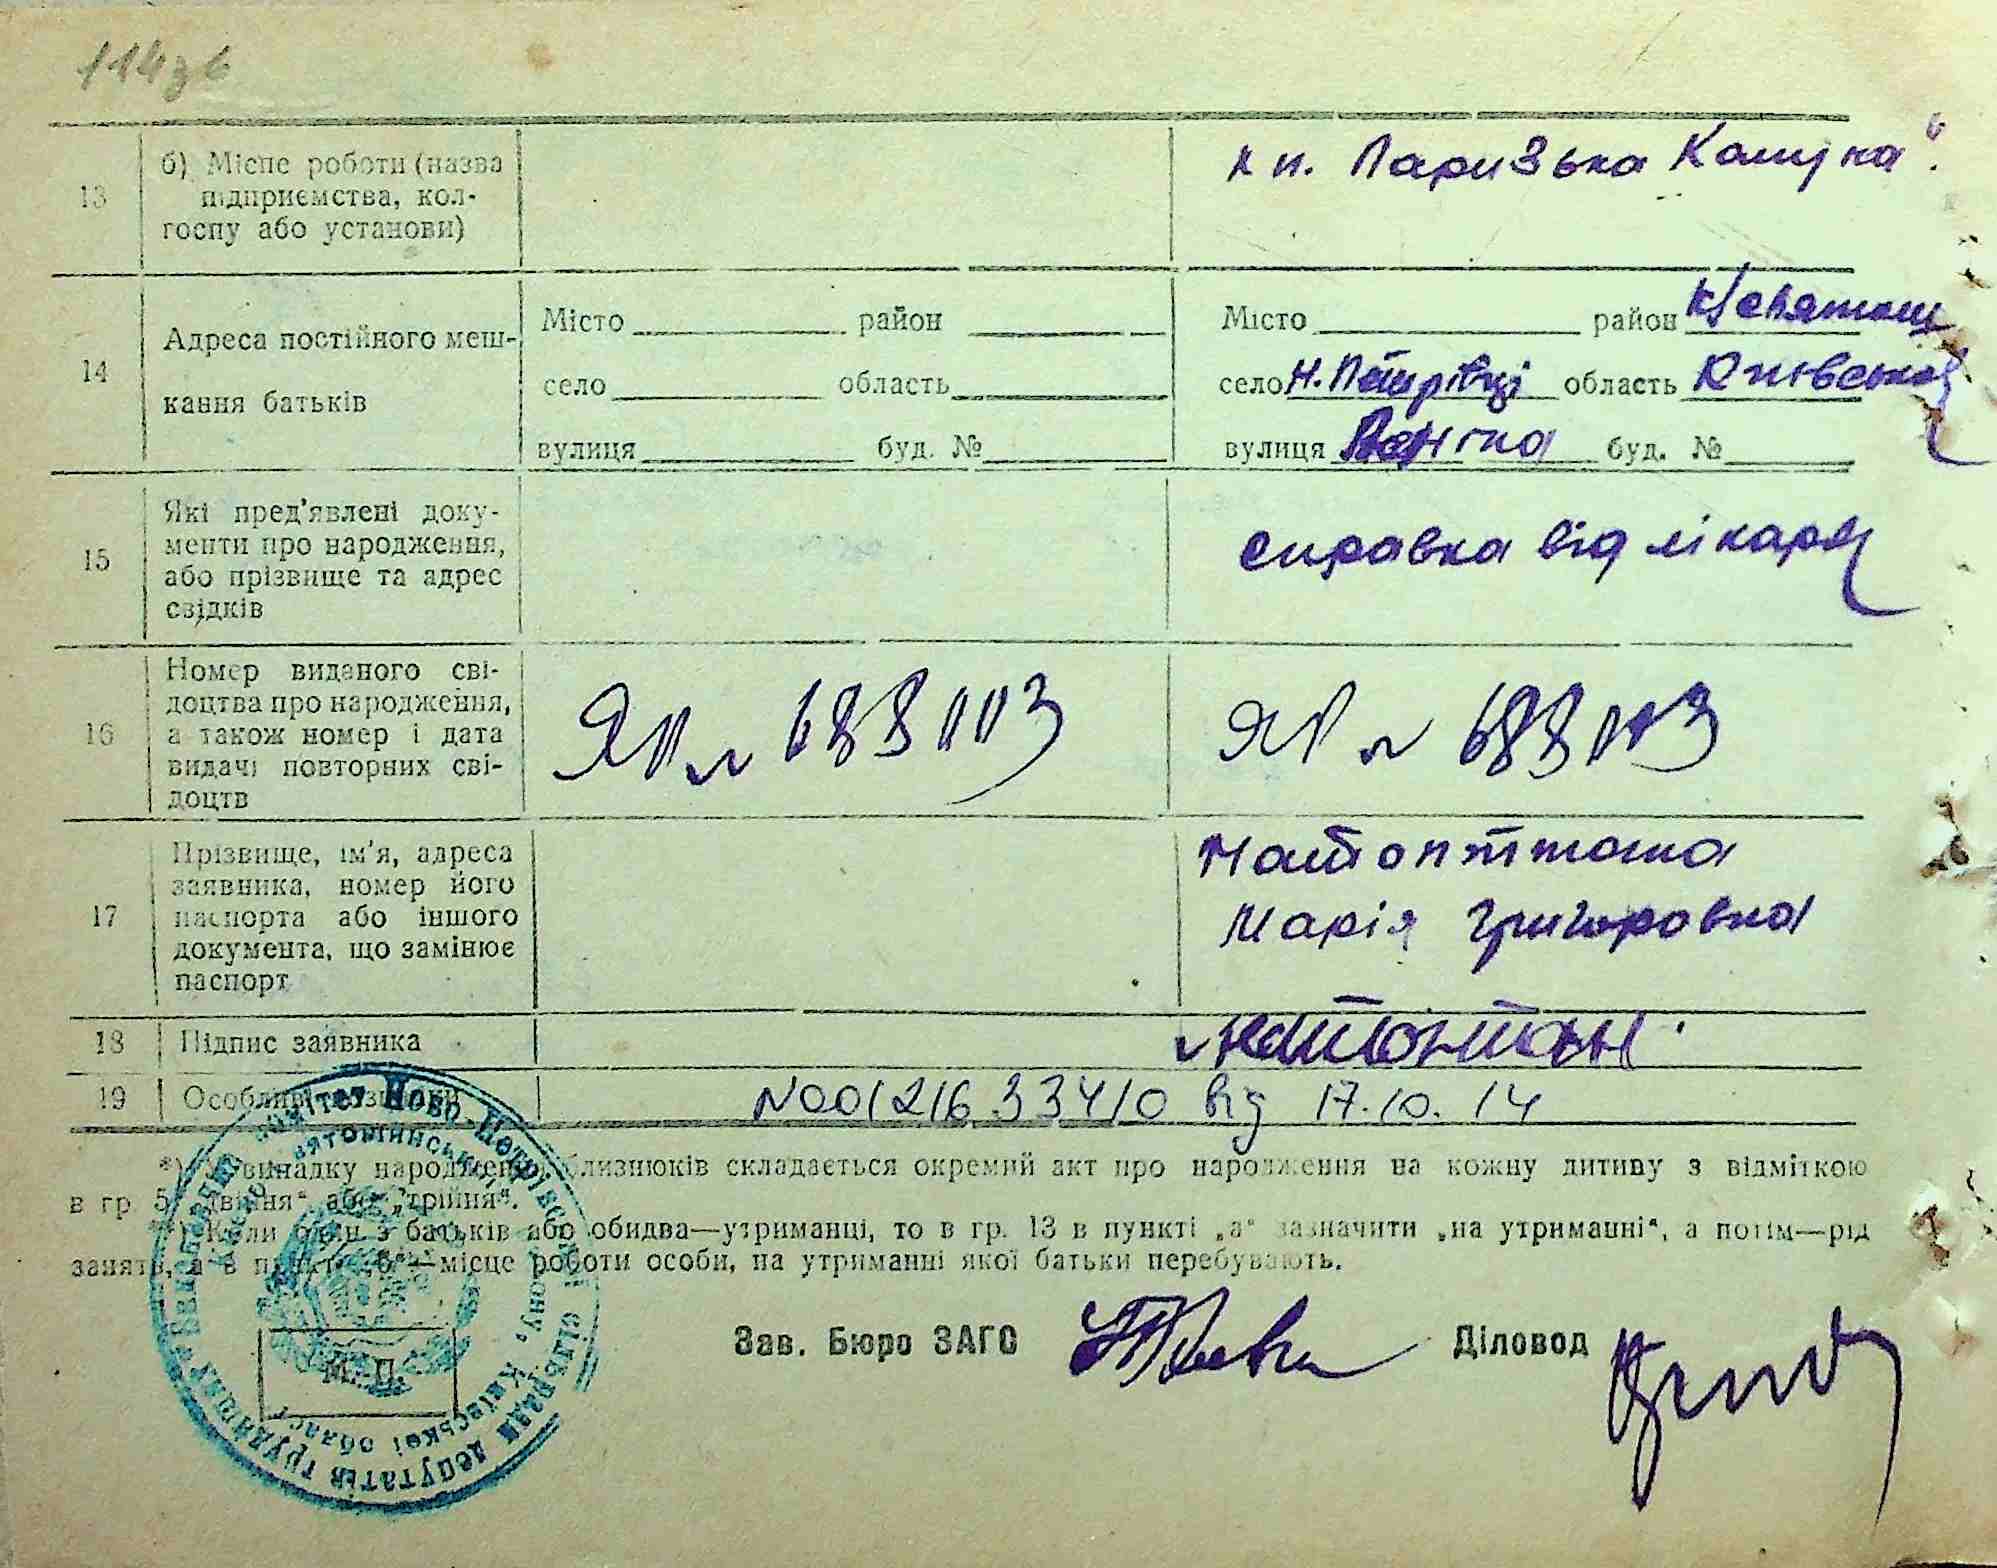 114зв
13
б) Місце роботи (назва
підприємства, кол-
госпу або установи)
к п. Паризька Комуна".
14
Адреса постійного меш-
кання батьків
Місто район
село область
вулиця буд. №
Місто район К/Святош
село Н. Петрівці область Київської
вулиця Леніна буд. №
15
Які пред'явлені доку-
менти про народження,
або прізвище та адрес
свідків
справка від лікаря
16
Номер виданого сві-
доцтва про народження,
а також номер і дата
видачі повторних сві-
доцтв
ЯП № 688003
ЯП № 688003
17
Прізвище, ім'я, адреса
заявника, номер його
паспорта або іншого
документа, що замінює
паспорт
Марія Григоровна
18
Підпис заявника
19
Особливі
N00121633410 від 17.10.14
*) У випадку народження близнюків складається окремий акт про народження на кожну дитину з відміткою
в гр 5 „двійня“ або „трійня“.
**) Коли один з батьків або обидва—утриманці, то в гр. 13 в пункті „а“ зазначити „на утриманні“, а потім—рід
занять, а в пункті „б“—місце роботи особи, на утриманні якої батьки перебувають.
Зав. Бюро ЗАГС
Діловод
М. П.
Виконавчий комітет Ново-Петрівської сільради депутатів трудящих
Києво-Святошинського району, Київської област